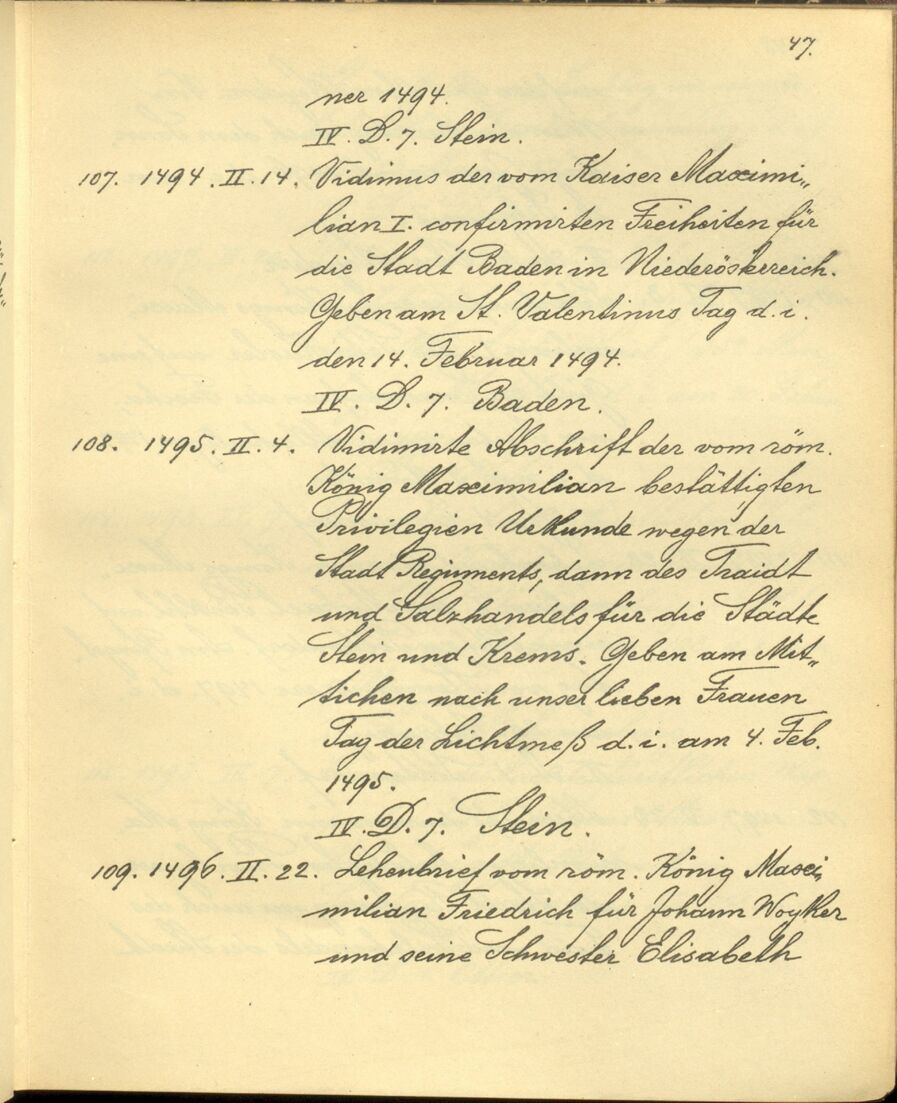 47.
ner 1494.
IV. D. 7. Stein.
107. 1494. II. 14. Vidimus der vom Kaiser Maximi„
lian I. confirmirten Freiheiten für
die Stadt Baden in Niederösterreich.
Geben am St. Valentinus Tag d. i.
den 14. Februar 1494.
IV. D. 7. Baden.
108. 1495. II. 4. Vidimirte Abschrift der vom röm.
König Maximilian bestättigten
Privilegien Urkunde wegen der
Stadt Regiments, dann des Traidt
und Salzhandels für die Städte
Stein und Krems. Geben am Mit„
tichen nach unser lieben Frauen
Tag der Lichtmeß d. i. am 4. Feb.
1495.
IV. D. 7. Stein.
109. 1496. II. 22. Lehenbrief vom röm. König Maxi„
milian Friedrich für Johann Woyker
und seine Schwester Elisabeth